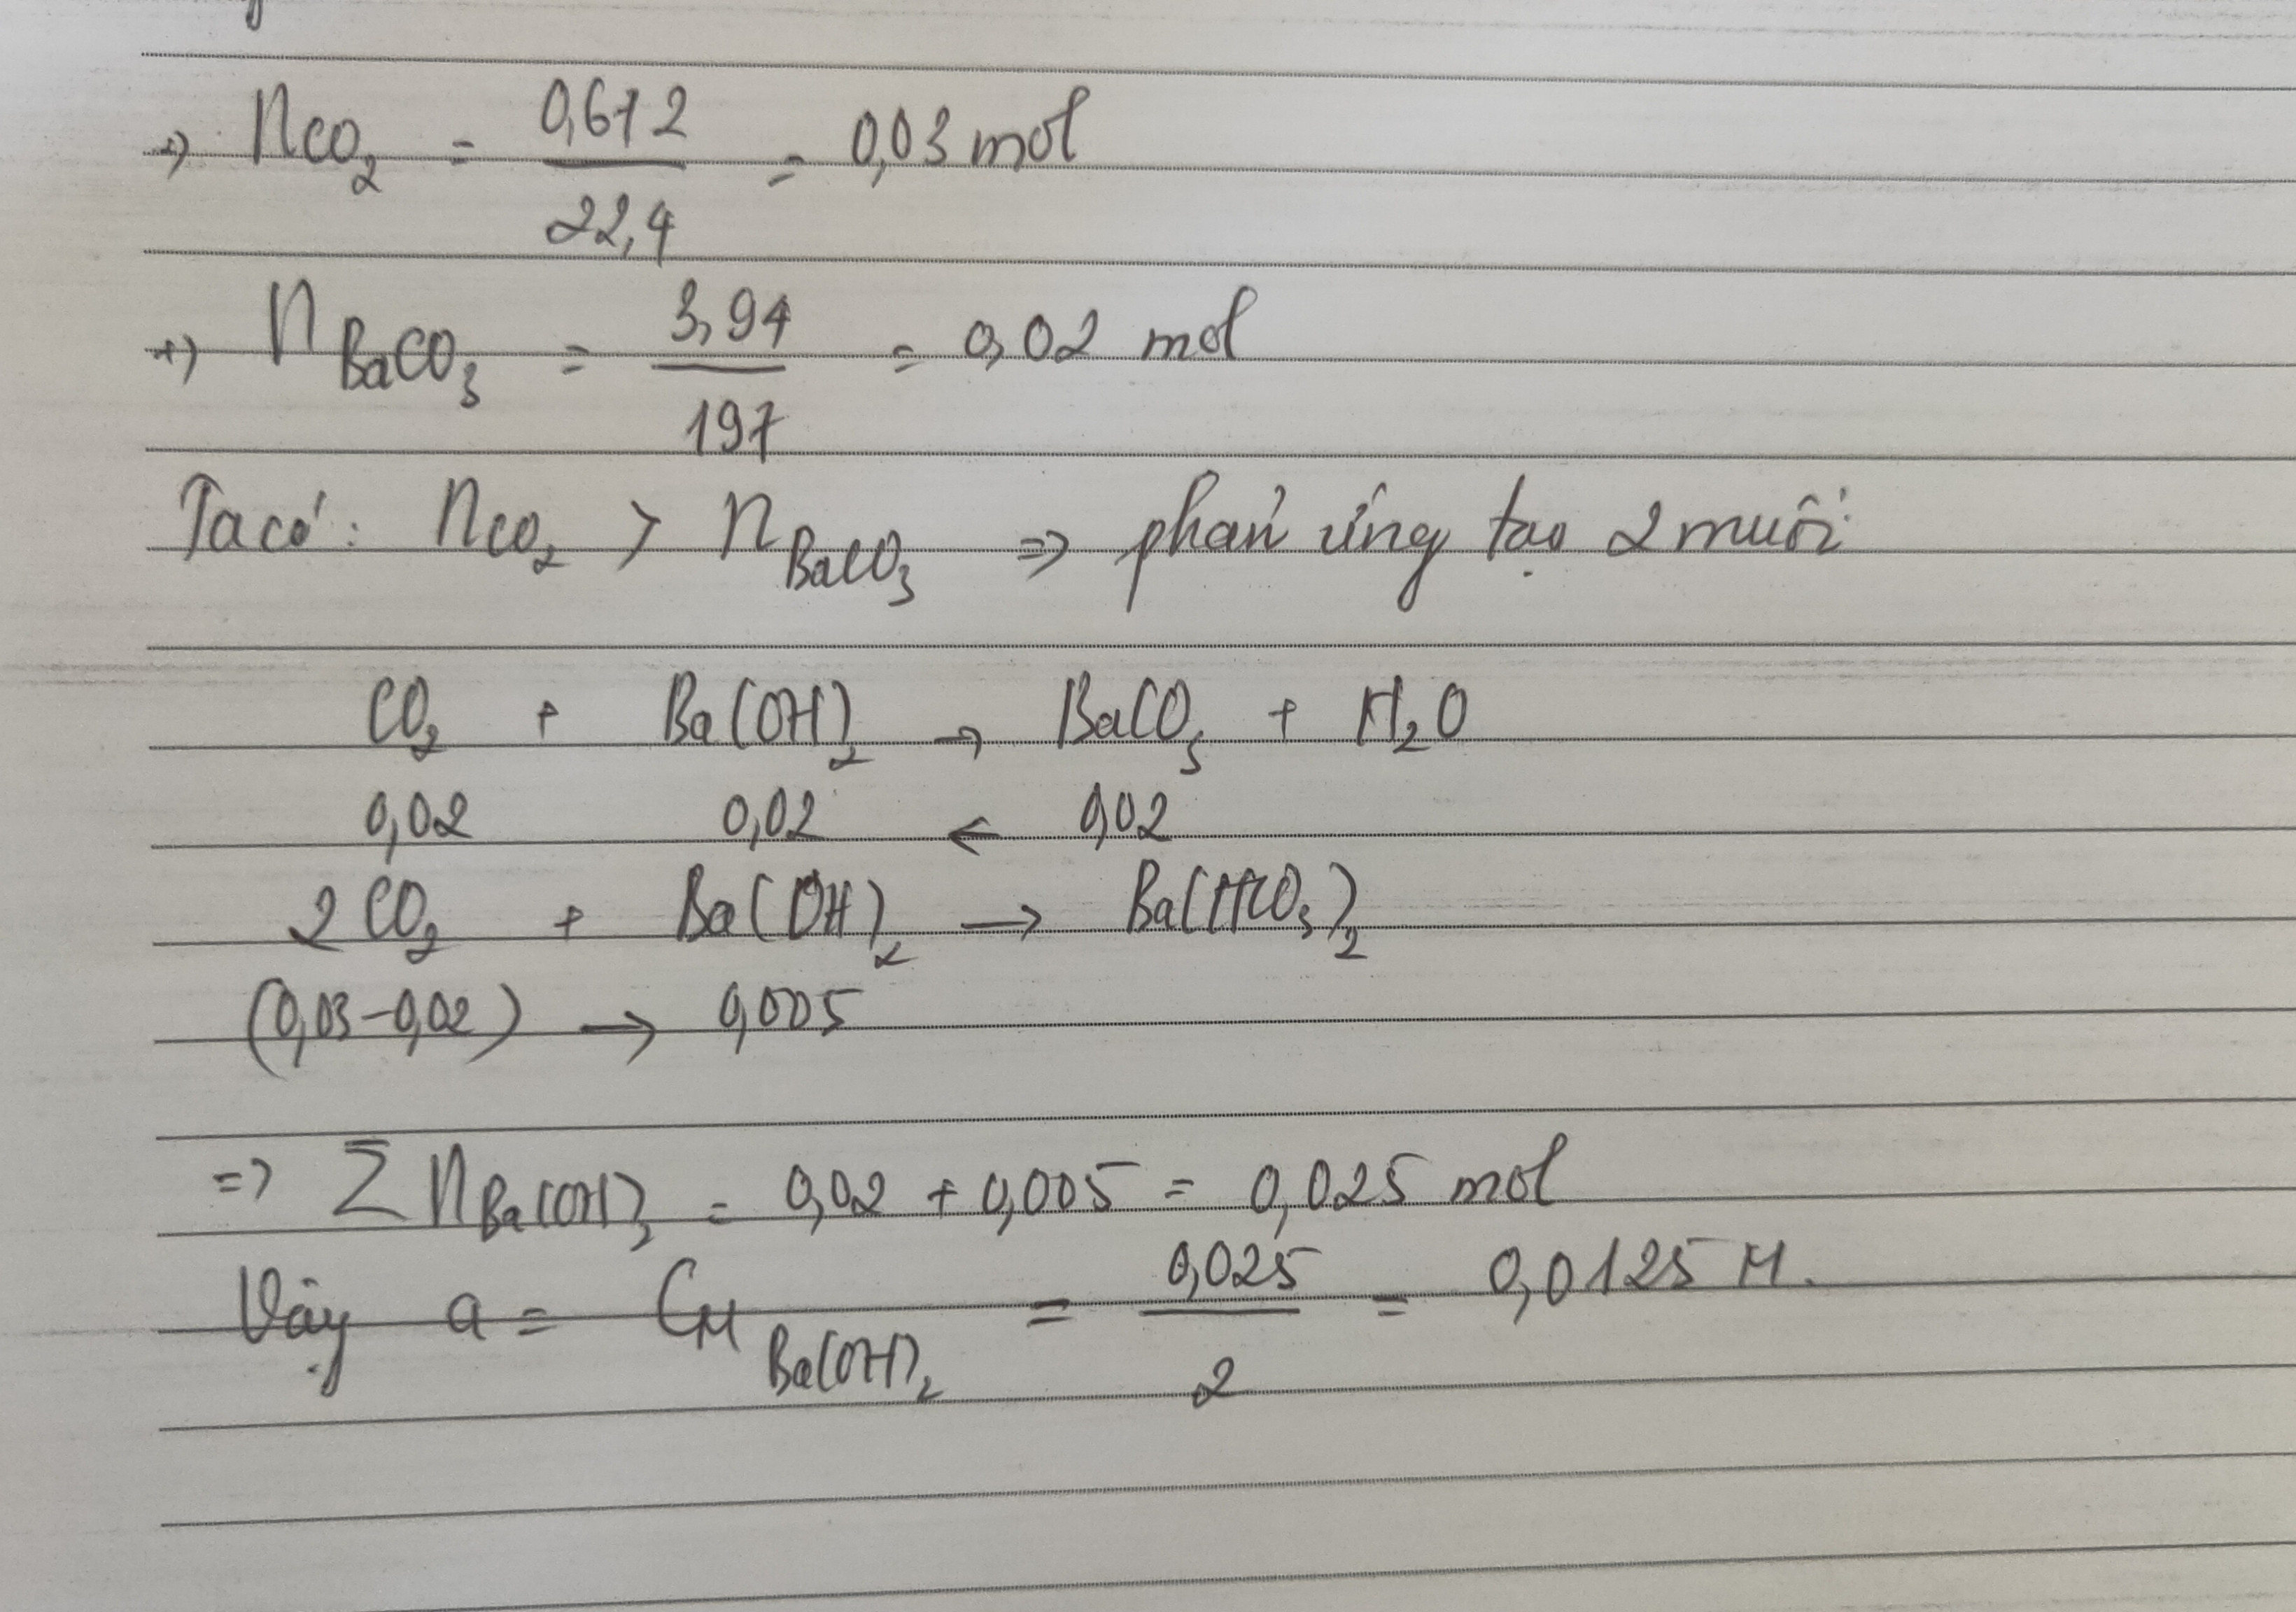 +) nCO₂ = 0,672 / 22,4 = 0,03 mol
+) nBaCO₃ = 3,94 / 197 = 0,02 mol
Ta có: nCO₂ > nBaCO₃ => phản ứng tạo 2 muối
CO₂ + Ba(OH)₂ → BaCO₃ + H₂O
0,02 0,02 ← 0,02
2CO₂ + Ba(OH)₂ → Ba(HCO₃)₂
(0,03-0,02) → 0,005
=> Σ nBa(OH)₂ = 0,02 + 0,005 = 0,025 mol
Vậy a = CM Ba(OH)₂ = 0,025 / 2 = 0,0125 M.